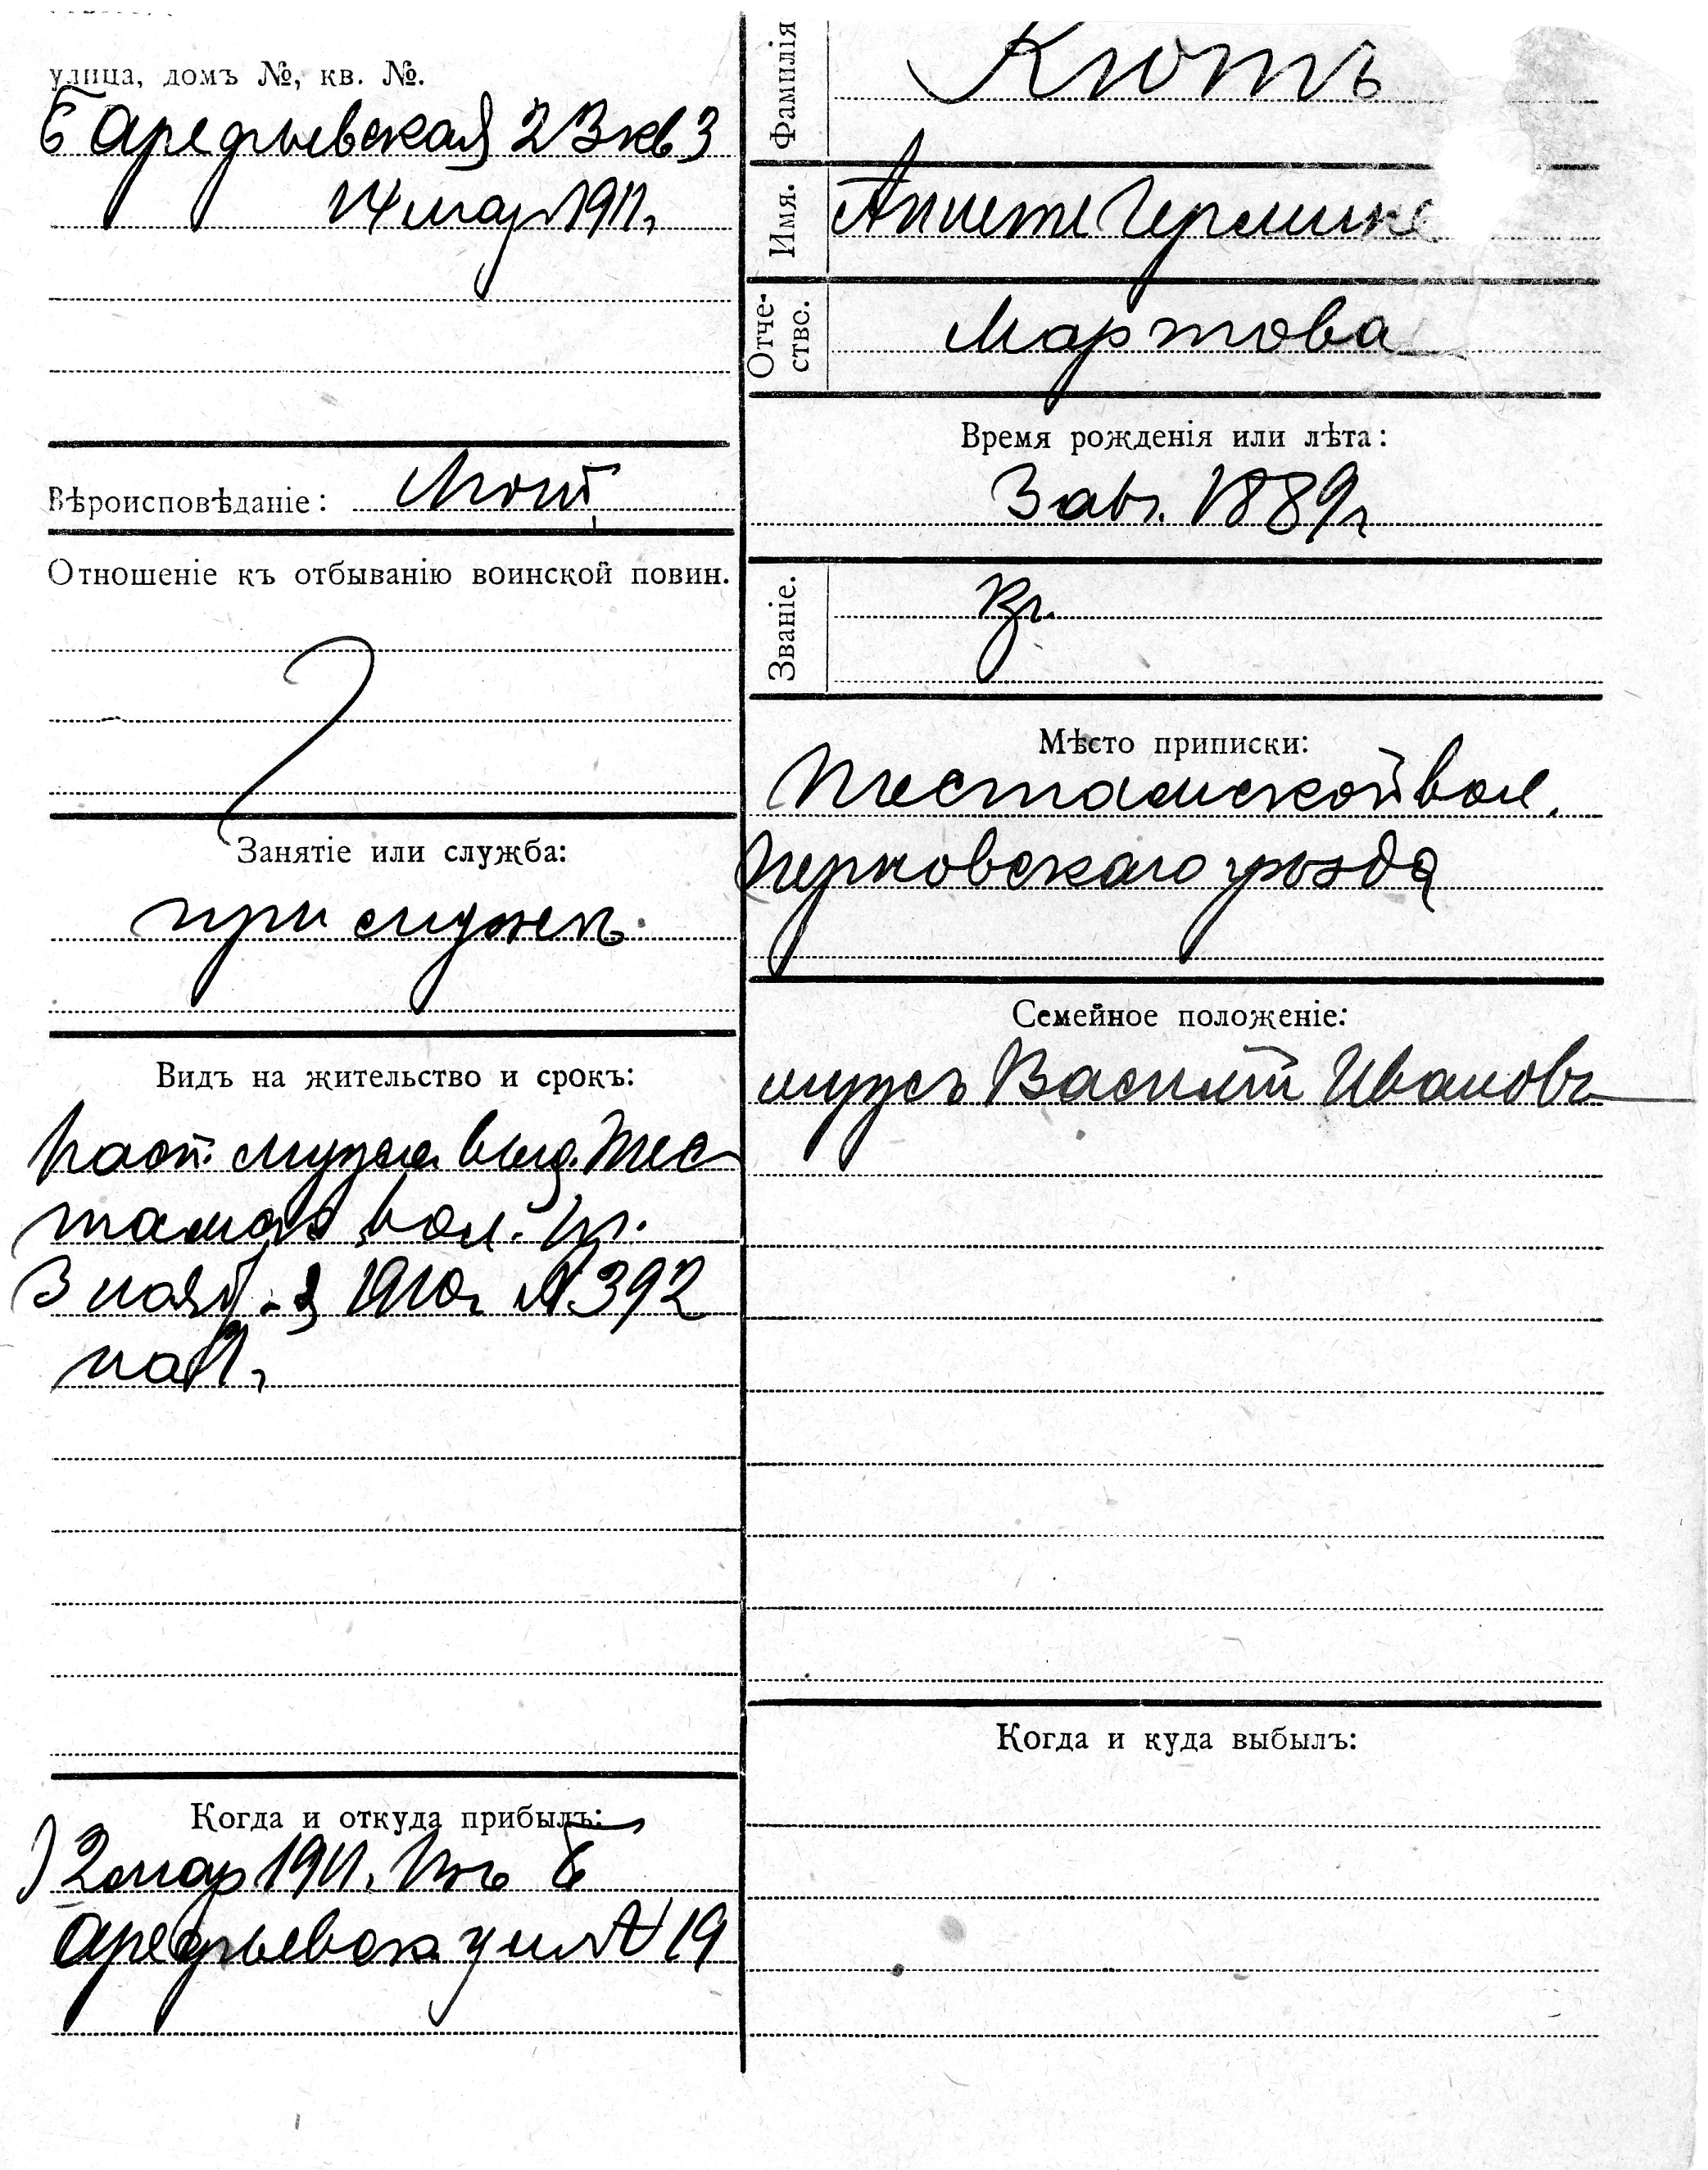 улица, домъ №, кв. №.
Б Аредьевская 23 кв 3
14 мар 1911 г.
Вѣроисповѣданіе: Лют.
Отношеніе къ отбыванію воинской повин.
Занятіе или служба:
при мужѣ
Видъ на жительство и срокъ:
Пасп. мужа выд. Тес
тамск вол. пр.
3 нояб. 1910 г № 392
на 1 г.
Когда и откуда прибылъ:
12 мар 1911. Изъ Б
Аредьевск ул № 19
Фамилія
Кютъ
Имя.
Аннете Гермине
Отче-
ство.
Мартова
Время рожденія или лѣта:
3 авг. 1889 г
Званіе.
кр.
Мѣсто приписки:
Тестамской вол.
Перновскаго уѣзда
Семейное положеніе:
мужъ Василій Ивановъ
Когда и куда выбылъ: